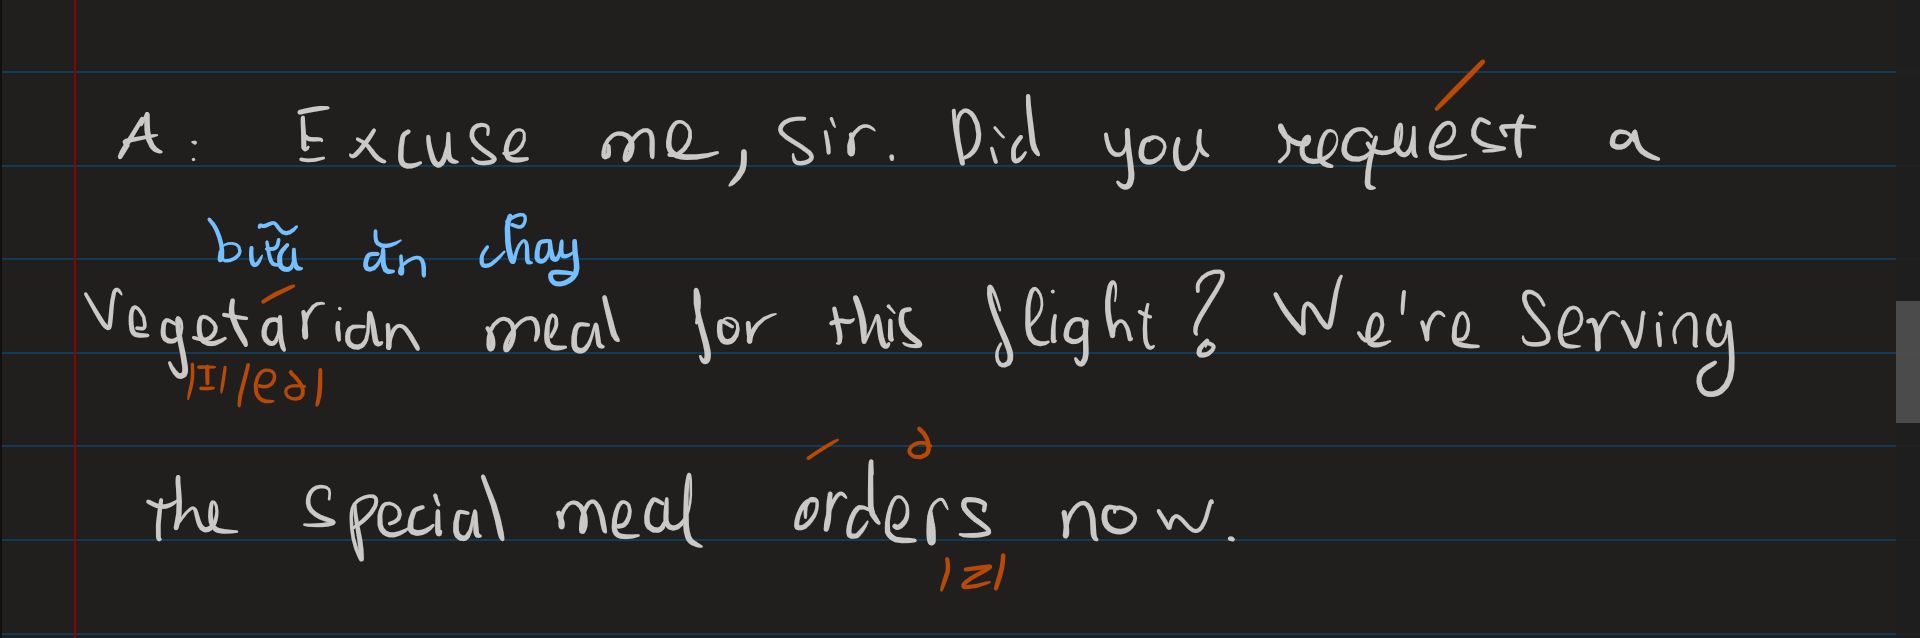 A: Excuse me, Sir. Did you request a
bữa ăn chay
Vegetarian meal for this flight? We're Serving
/ɪ/ /eə/
ə
the special meal orders now.
/z/